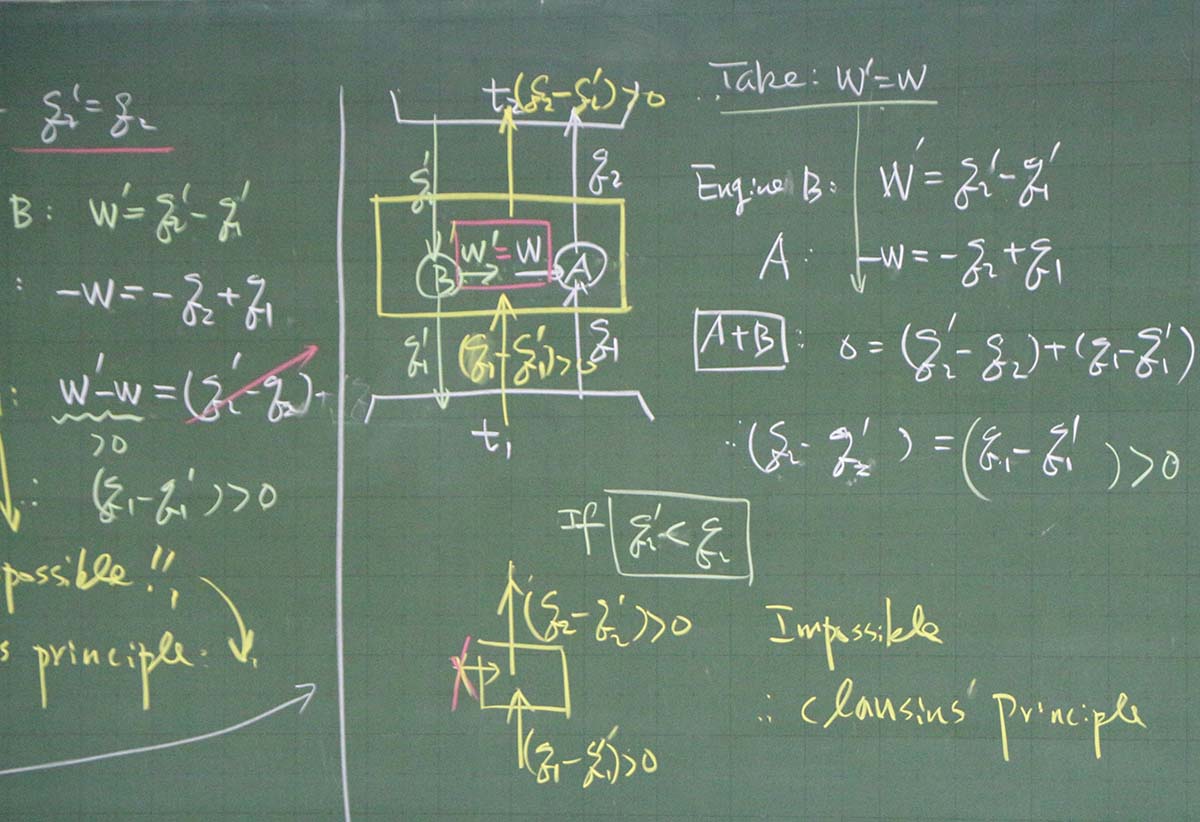 q₂' = q₂
B: W' = q₂' - q₁'
: -W = -q₂ + q₁
: W' - W = (q₂' - q₂) +
>0
∴ (q₁ - q₁') > 0
possible!!,
s principle:
t₂ (q₂ - q₂') > 0
q₂' q₂
B W' = W A
q₁' (q₁ - q₁') > 0 q₁
t₁
Take: W' = W
Engine B: W' = q₂' - q₁'
A: -W = -q₂ + q₁
A+B : 0 = (q₂' - q₂) + (q₁ - q₁')
∴ (q₂ - q₂') = (q₁ - q₁') > 0
If q₂' < q₂
(q₂ - q₂') > 0
(q₁ - q₁') > 0
Impossible
∴ Clausius' principle